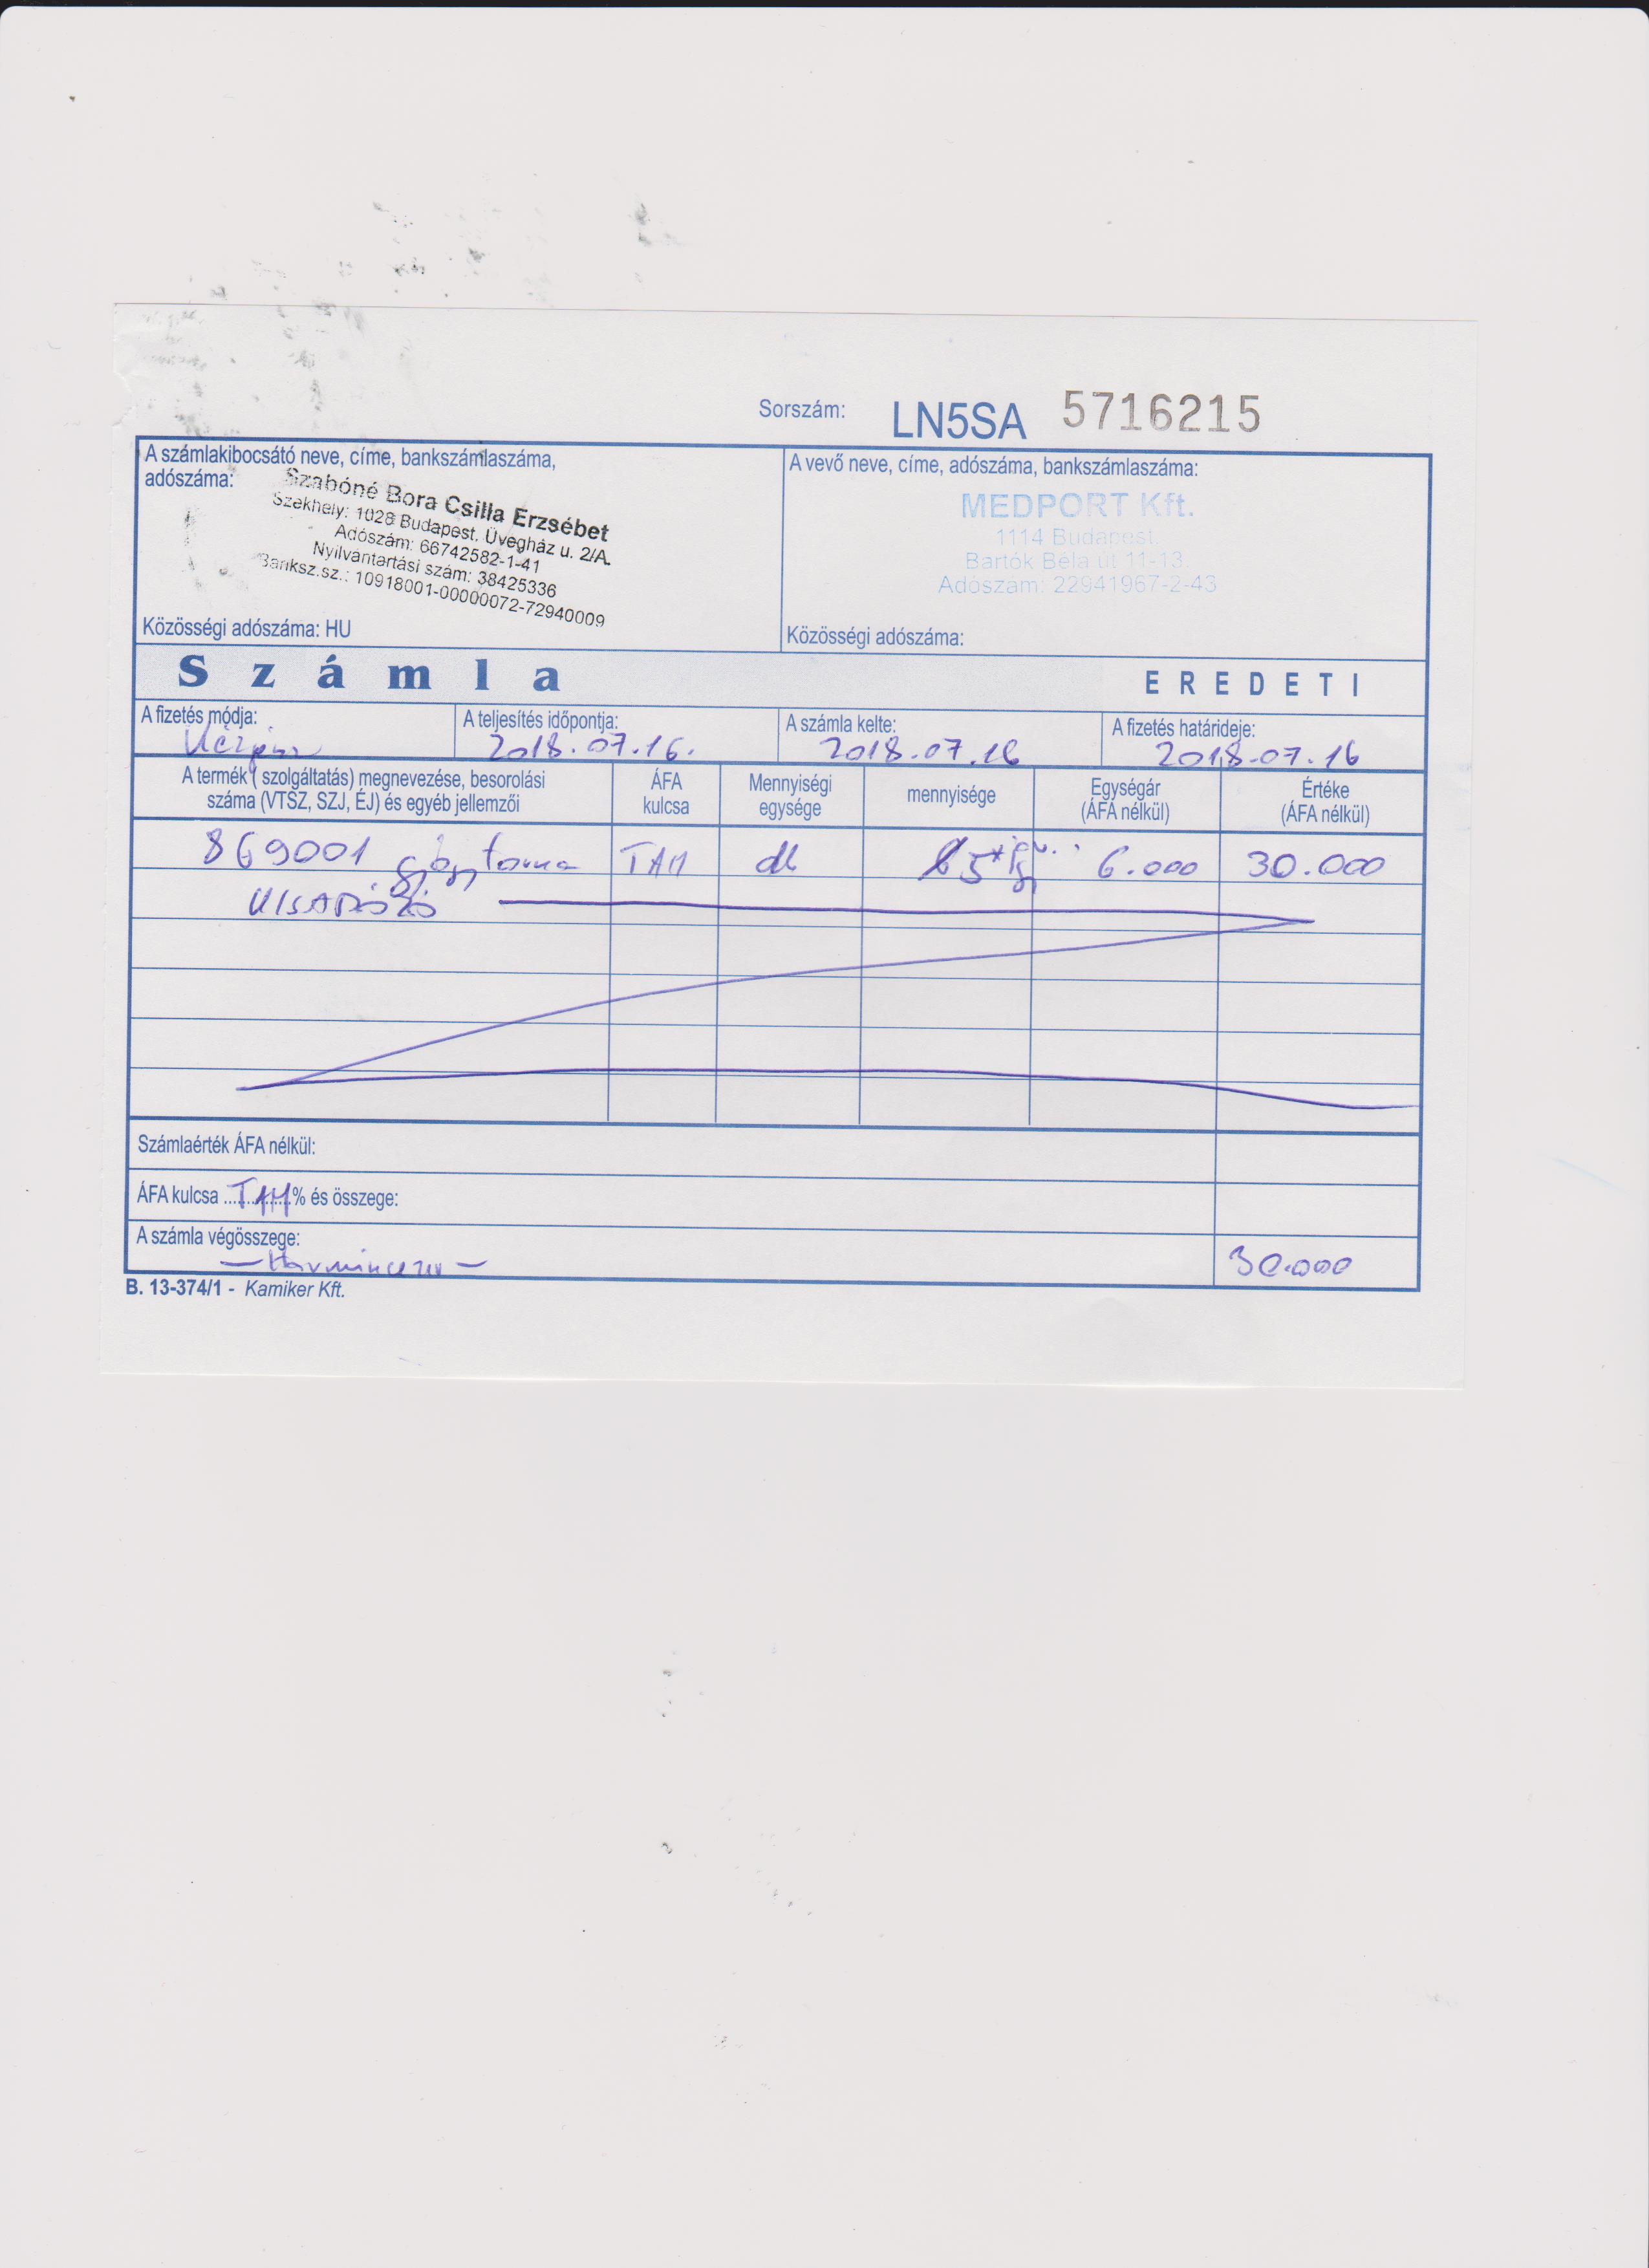 Sorszám: LN5SA 5716215
A számlakibocsátó neve, címe, bankszámlaszáma,
adószáma:
Szabóné Bora Csilla Erzsébet
Székhely: 1028 Budapest, Üvegház u. 2/A.
Adószám: 66742582-1-41
Nyilvántartási szám: 38425336
Banksz.sz.: 10918001-00000072-72940009
Közösségi adószáma: HU
A vevő neve, címe, adószáma, bankszámlaszáma:
MEDPORT Kft.
1114 Budapest,
Bartók Béla út 11-13.
Adószám: 22941967-2-43
Közösségi adószáma:
Számla EREDETI
A fizetés módja: A teljesítés időpontja: A számla kelte: A fizetés határideje:
2018.07.16. 2018.07.16 2018.07.16
A termék (szolgáltatás) megnevezése, besorolási
száma (VTSZ, SZJ, ÉJ) és egyéb jellemzői
ÁFA
kulcsa
Mennyiségi
egysége
mennyisége
Egységár
(ÁFA nélkül)
Értéke
(ÁFA nélkül)
869001 gyógytorna TAM db 5* 6.000 30.000
KISADÓZÓ
Számlaérték ÁFA nélkül:
ÁFA kulcsa TAM % és összege:
A számla végösszege:
— Harmincezer — 30.000
B. 13-374/1 - Kamiker Kft.